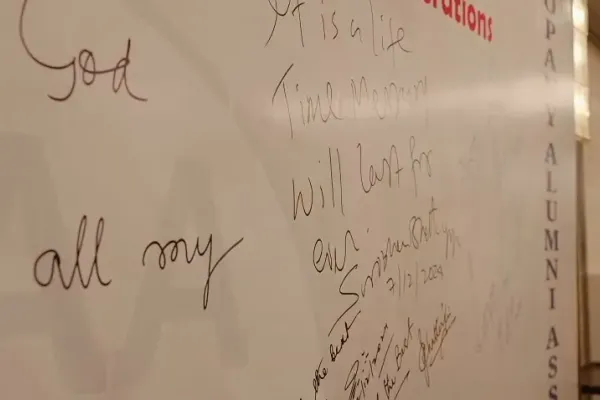 God
all my
It is a life
Time Memory
will last for
ever.
7/12/2024
the best
the Best
erations
OPA
Y ALUMNI ASS